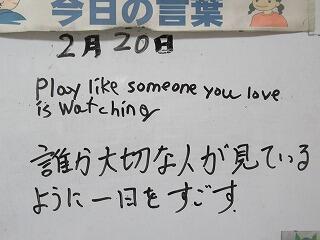 今日の言葉
2月20日
Play like someone you love
is watching
誰か大切な人が見ている
ように一日をすごす.